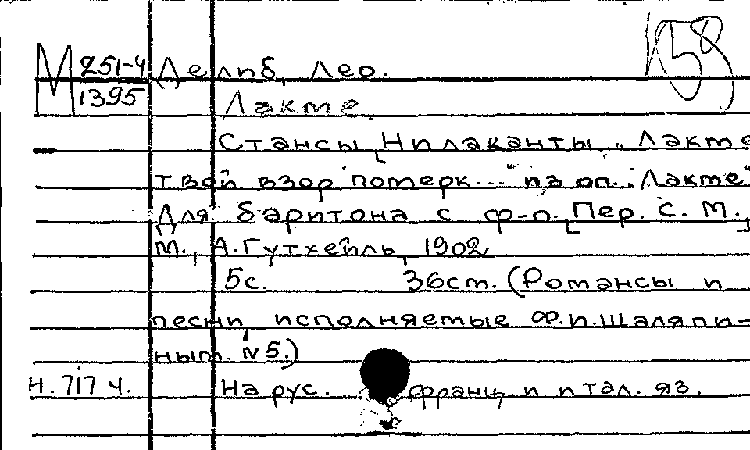 М 251-4 Делиб, Лео.
1395 Лакме.
Стансы Нилаканты „Лакме
твой взор померк..." из оп. „Лакме"
Для баритона с ф-п. [Пер. С. М.]
М., А. Гутхейль, 1902
5с. 36см. (Романсы и
песни, исполняемые Ф.И.Шаляпи-
ным. №5.)
Н. 717 ч. На рус. франц. и итал. яз.